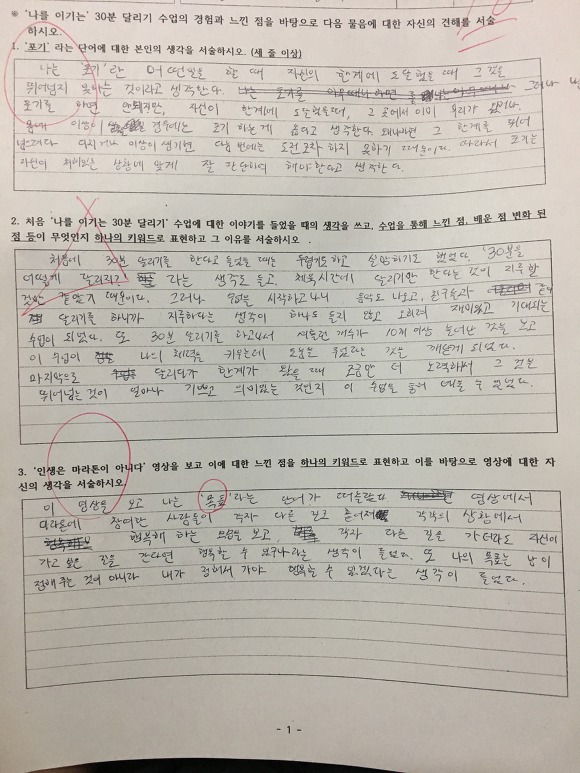 ※ '나를 이기는' 30분 달리기 수업의 경험과 느낀 점을 바탕으로 다음 물음에 대한 자신의 견해를 서술
하시오.
1. '포기' 라는 단어에 대한 본인의 생각을 서술하시오. (세 줄 이상)
나는 '포기'란 어떤일을 할 때 자신의 한계에 도달했을 때 그것을
뛰어넘지 못하는 것이라고 생각한다. 그러나
포기를 하면 안되지만, 자신이 한계에 도달했을때, 그 곳에서 이미 무리가 있거나
몸에 이상이 경우에는 포기 하는게 옳다고 생각한다. 왜냐하면 그 한계를 뛰어
넘으려다 다치거나 이상이 생기면 다음 번에는 도전조차 하지 못하기 때문이다. 따라서 포기는
자신이 처해있는 상황에 맞게 잘 판단하여 해야한다고 생각한다.
2. 처음 '나를 이기는 30분 달리기' 수업에 대한 이야기를 들었을 때의 생각을 쓰고, 수업을 통해 느낀 점, 배운 점 변화 된
점 등이 무엇인지 하나의 키워드로 표현하고 그 이유를 서술하시오 .
처음에 30분 달리기를 한다고 들었을 때는 두렵기도하고 실망하기도 했었다. '30분을
어떻게 달리지?' 라는 생각도 들고, 체육시간에 달리기만 한다는 것이 지루할
것만 같았기 때문이다. 그러나 수업을 시작하고나니 음악도 나오고, 친구들과 같이
달리기를 하니까 지루하다는 생각이 하나도 들지 않고 오히려 재미있고 기대되는
수업이 되었다. 또 30분 달리기를 하고나서 셔틀런 개수가 10개 이상 늘어난 것을 보고
이 수업이 나의 체력을 키우는데 도움을 주었다는 것을 깨닫게 되었다.
마지막으로 달리다가 한계가 왔을 때 조금만 더 노력해서 그 것을
뛰어넘는것이 얼마나 기쁘고 의미있는 것인지 이 수업을 통해 배울 수 있었다.
3. '인생은 마라톤이 아니다' 영상을 보고 이에 대한 느낀 점을 하나의 키워드로 표현하고 이를 바탕으로 영상에 대한 자
신의 생각을 서술하시오.
이 영상을 보고 나는 '목표'라는 단어가 떠올랐다. 영상에서
마라톤에 참여한 사람들이 각자 다른 길로 흩어져 각각의 상황에서
행복해 하는 모습을 보고, 각자 다른 길을 가더라도 자신이
가고 싶은 길을 간다면 행복할 수 있구나라는 생각이 들었다. 또 나의 목표는 남이
정해주는 것이 아니라 내가 정해서 가야 행복할 수 있겠다는 생각이 들었다.
- 1 -